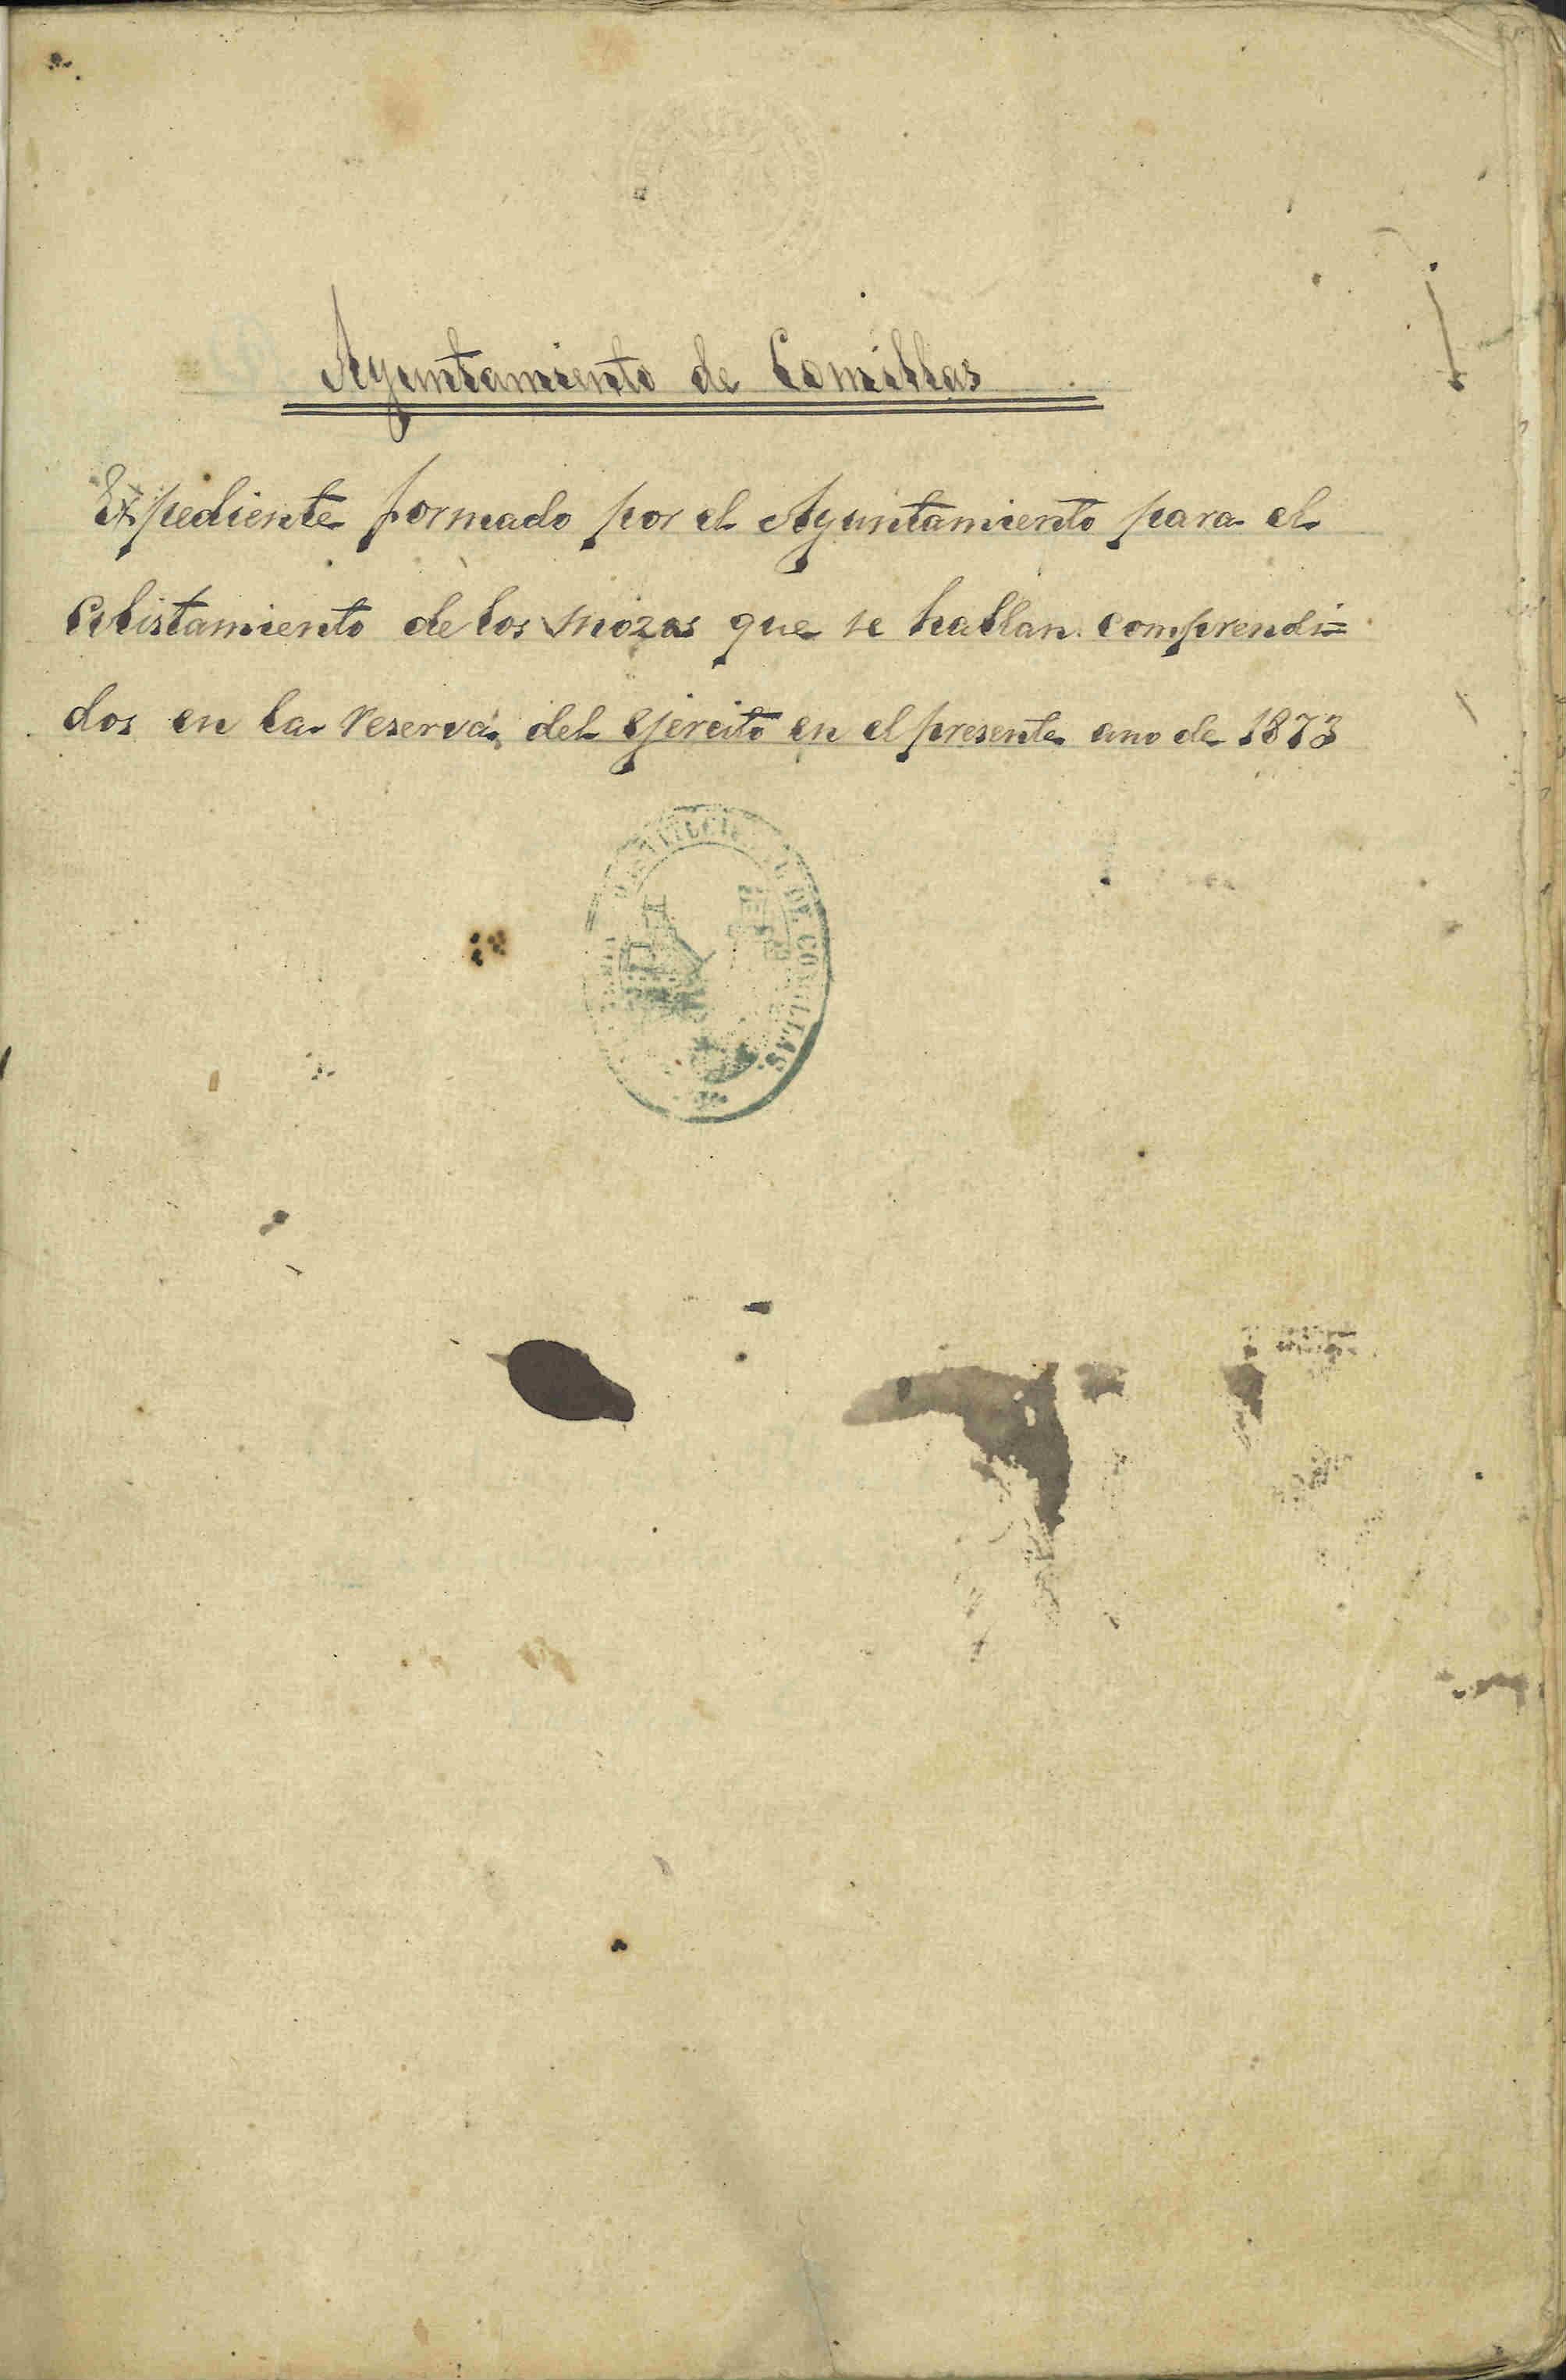 Ayuntamiento de Comillas
Expediente formado por el Ayuntamiento para el
alistamiento de los mozos que se hallan comprendi=
dos en la reserva del ejercito en el presente año de 1873
DE COMILLAS